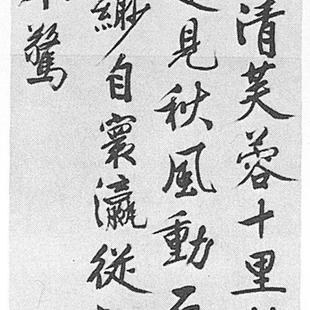 清芙蓉十里
見秋風動
緲自寰瀛從
驚